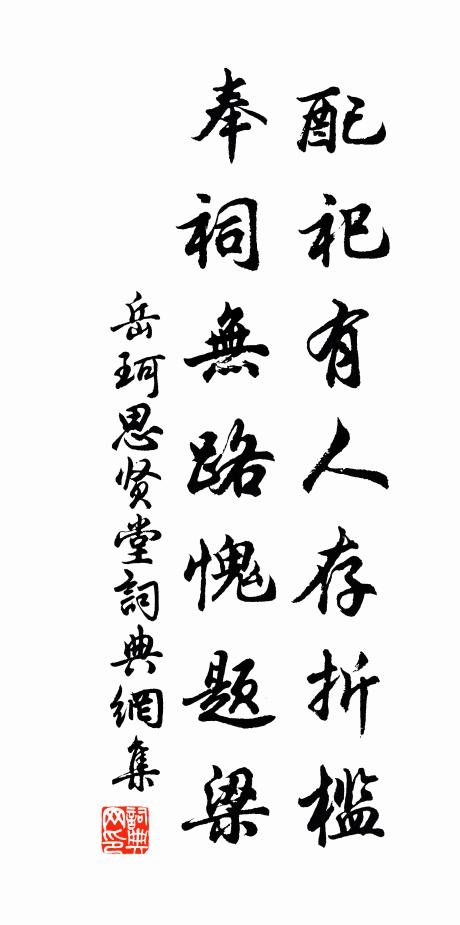 配祀有人存折檻
奉祠無路愧題梁
岳珂思贤堂詞典網集
詞典网印